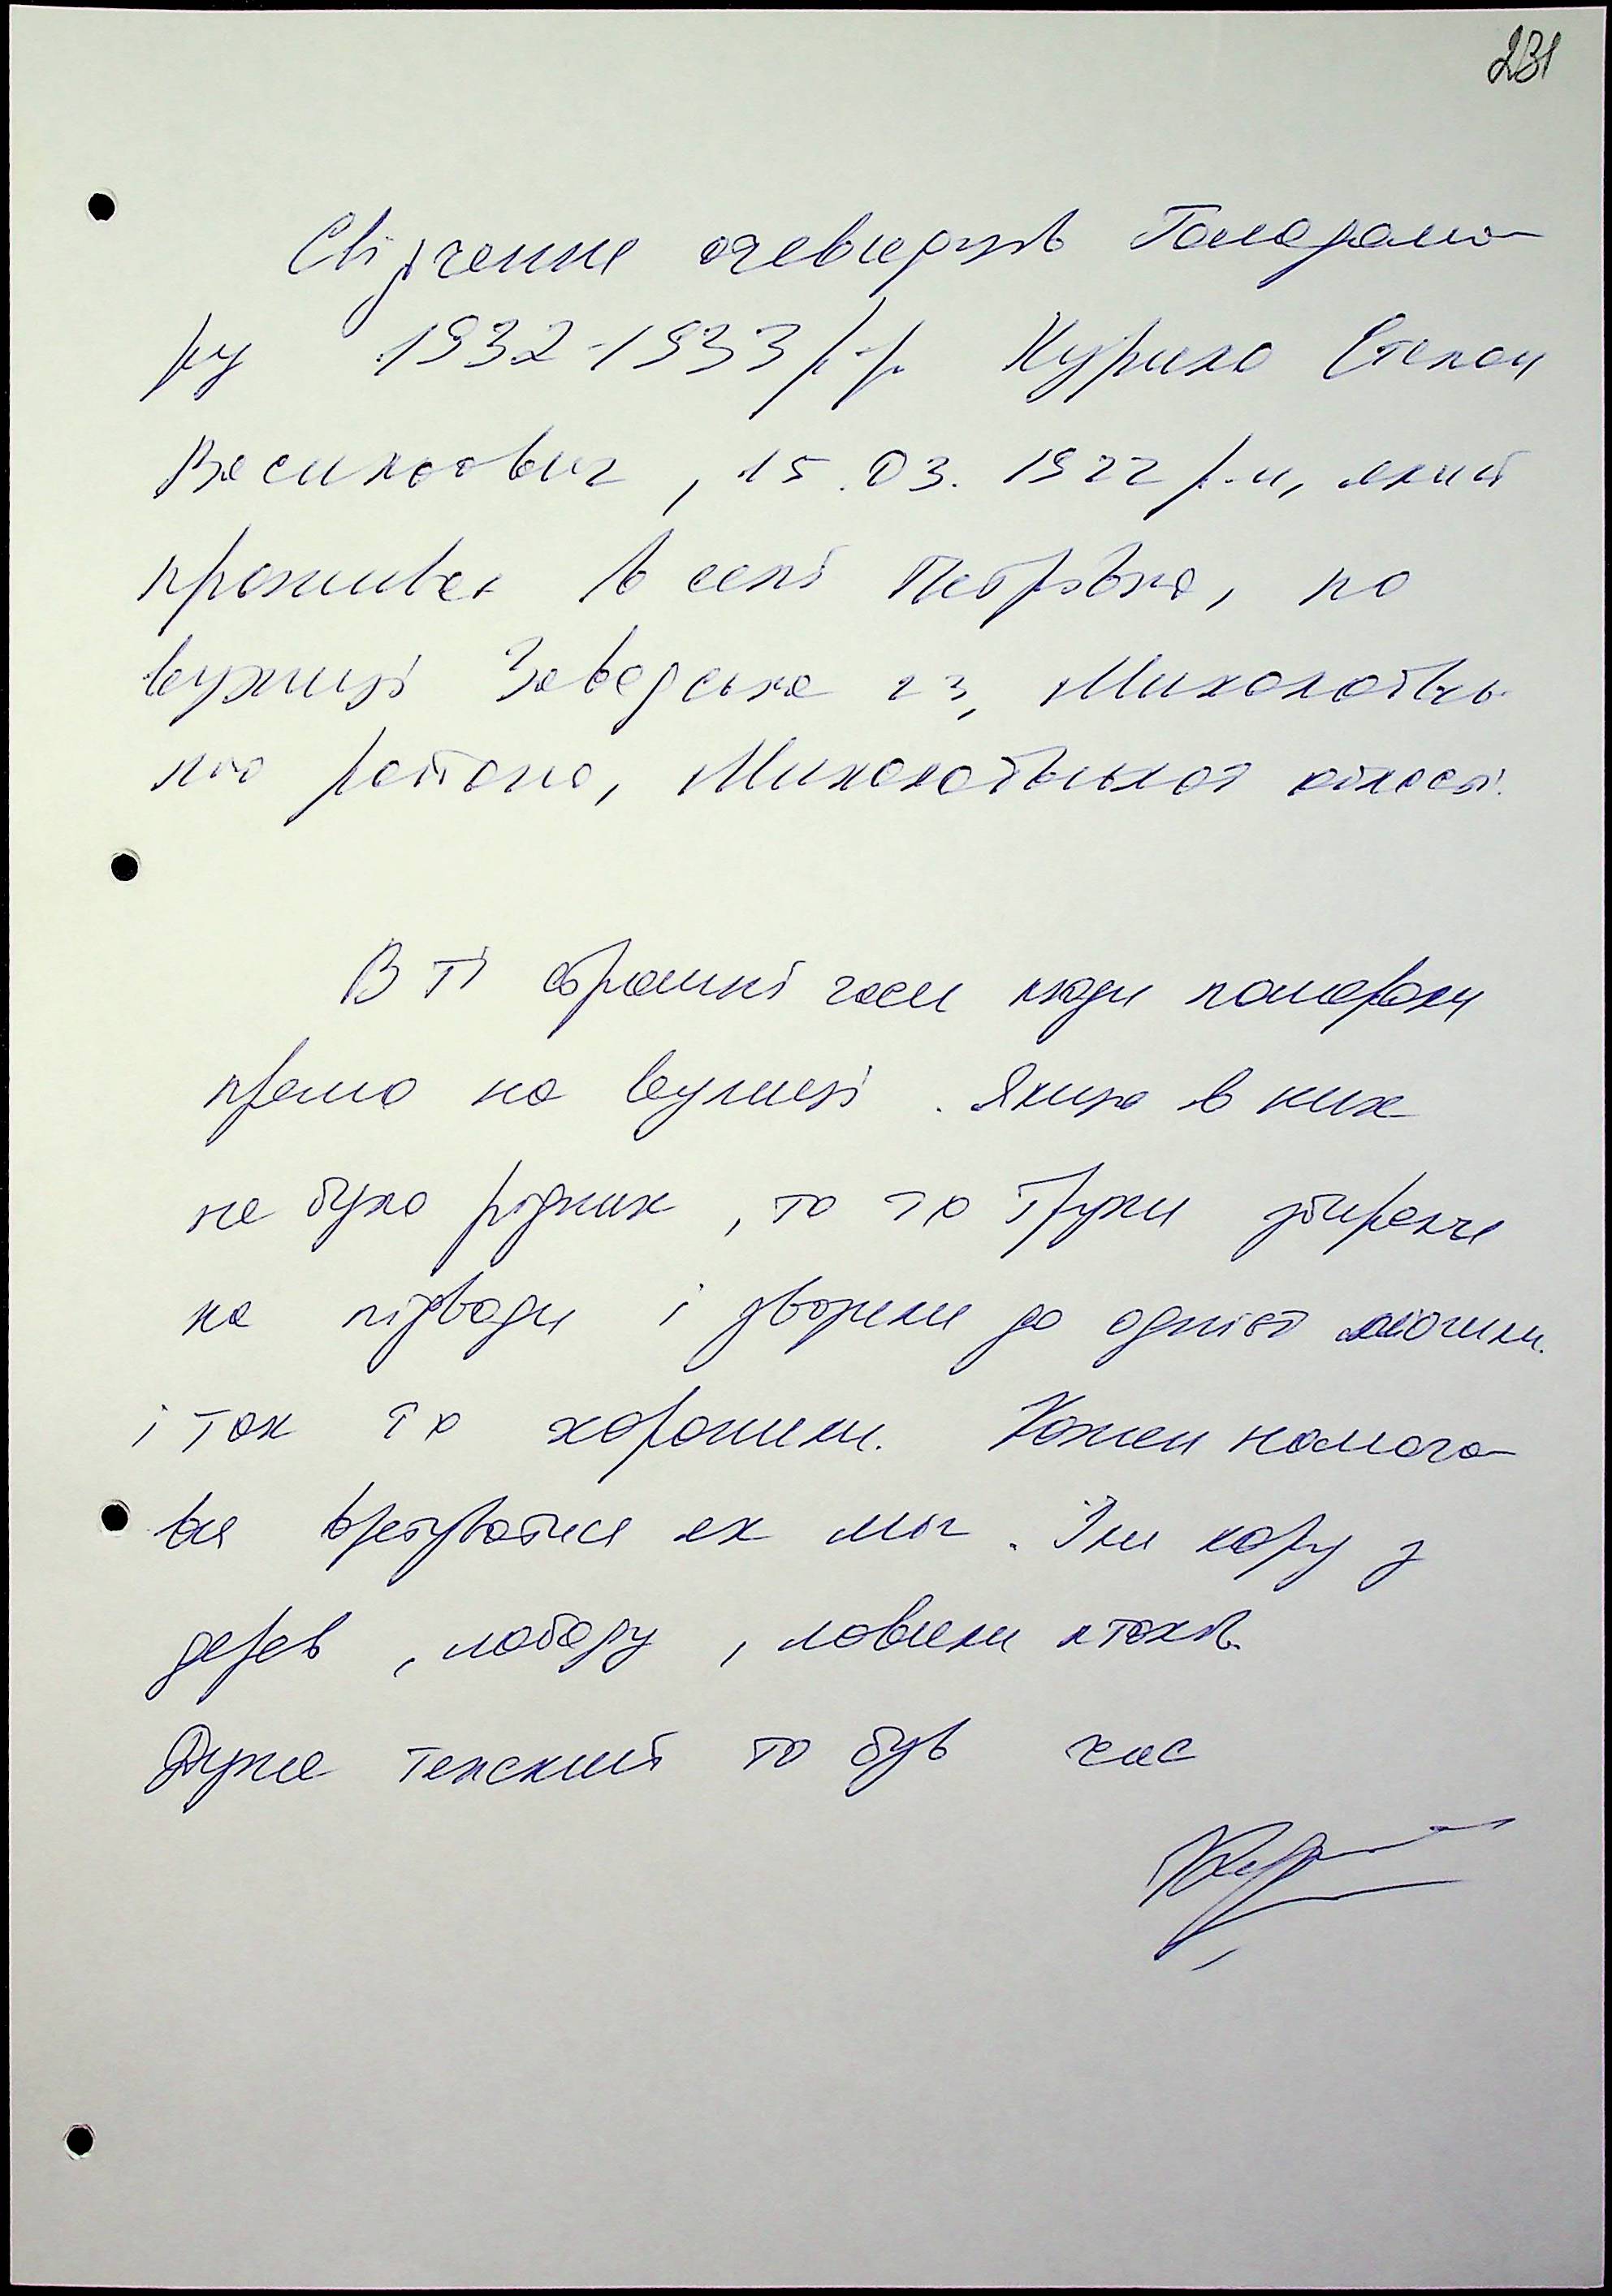 231
Свідчення очевидців Голодомо-
ру 1932-1933 р.р. Курило Степан
Васильович, 15.03.1922 р.н, який
проживає в селі Петрівка, по
вулиці Заводська 23, Миколаївсь-
кго району, Миколаївської області.
В ті страшні часи люди помирали
прямо на вулиці. Якщо в них
не було рідних, то їх трупи збирали
на підводи і звозили до однієї могили.
і так їх хоронили. Кожен намага-
вся врятуватися як міг. Їли кору з
дерев, лободу, ловили птахів.
Дуже тяжкий то був час